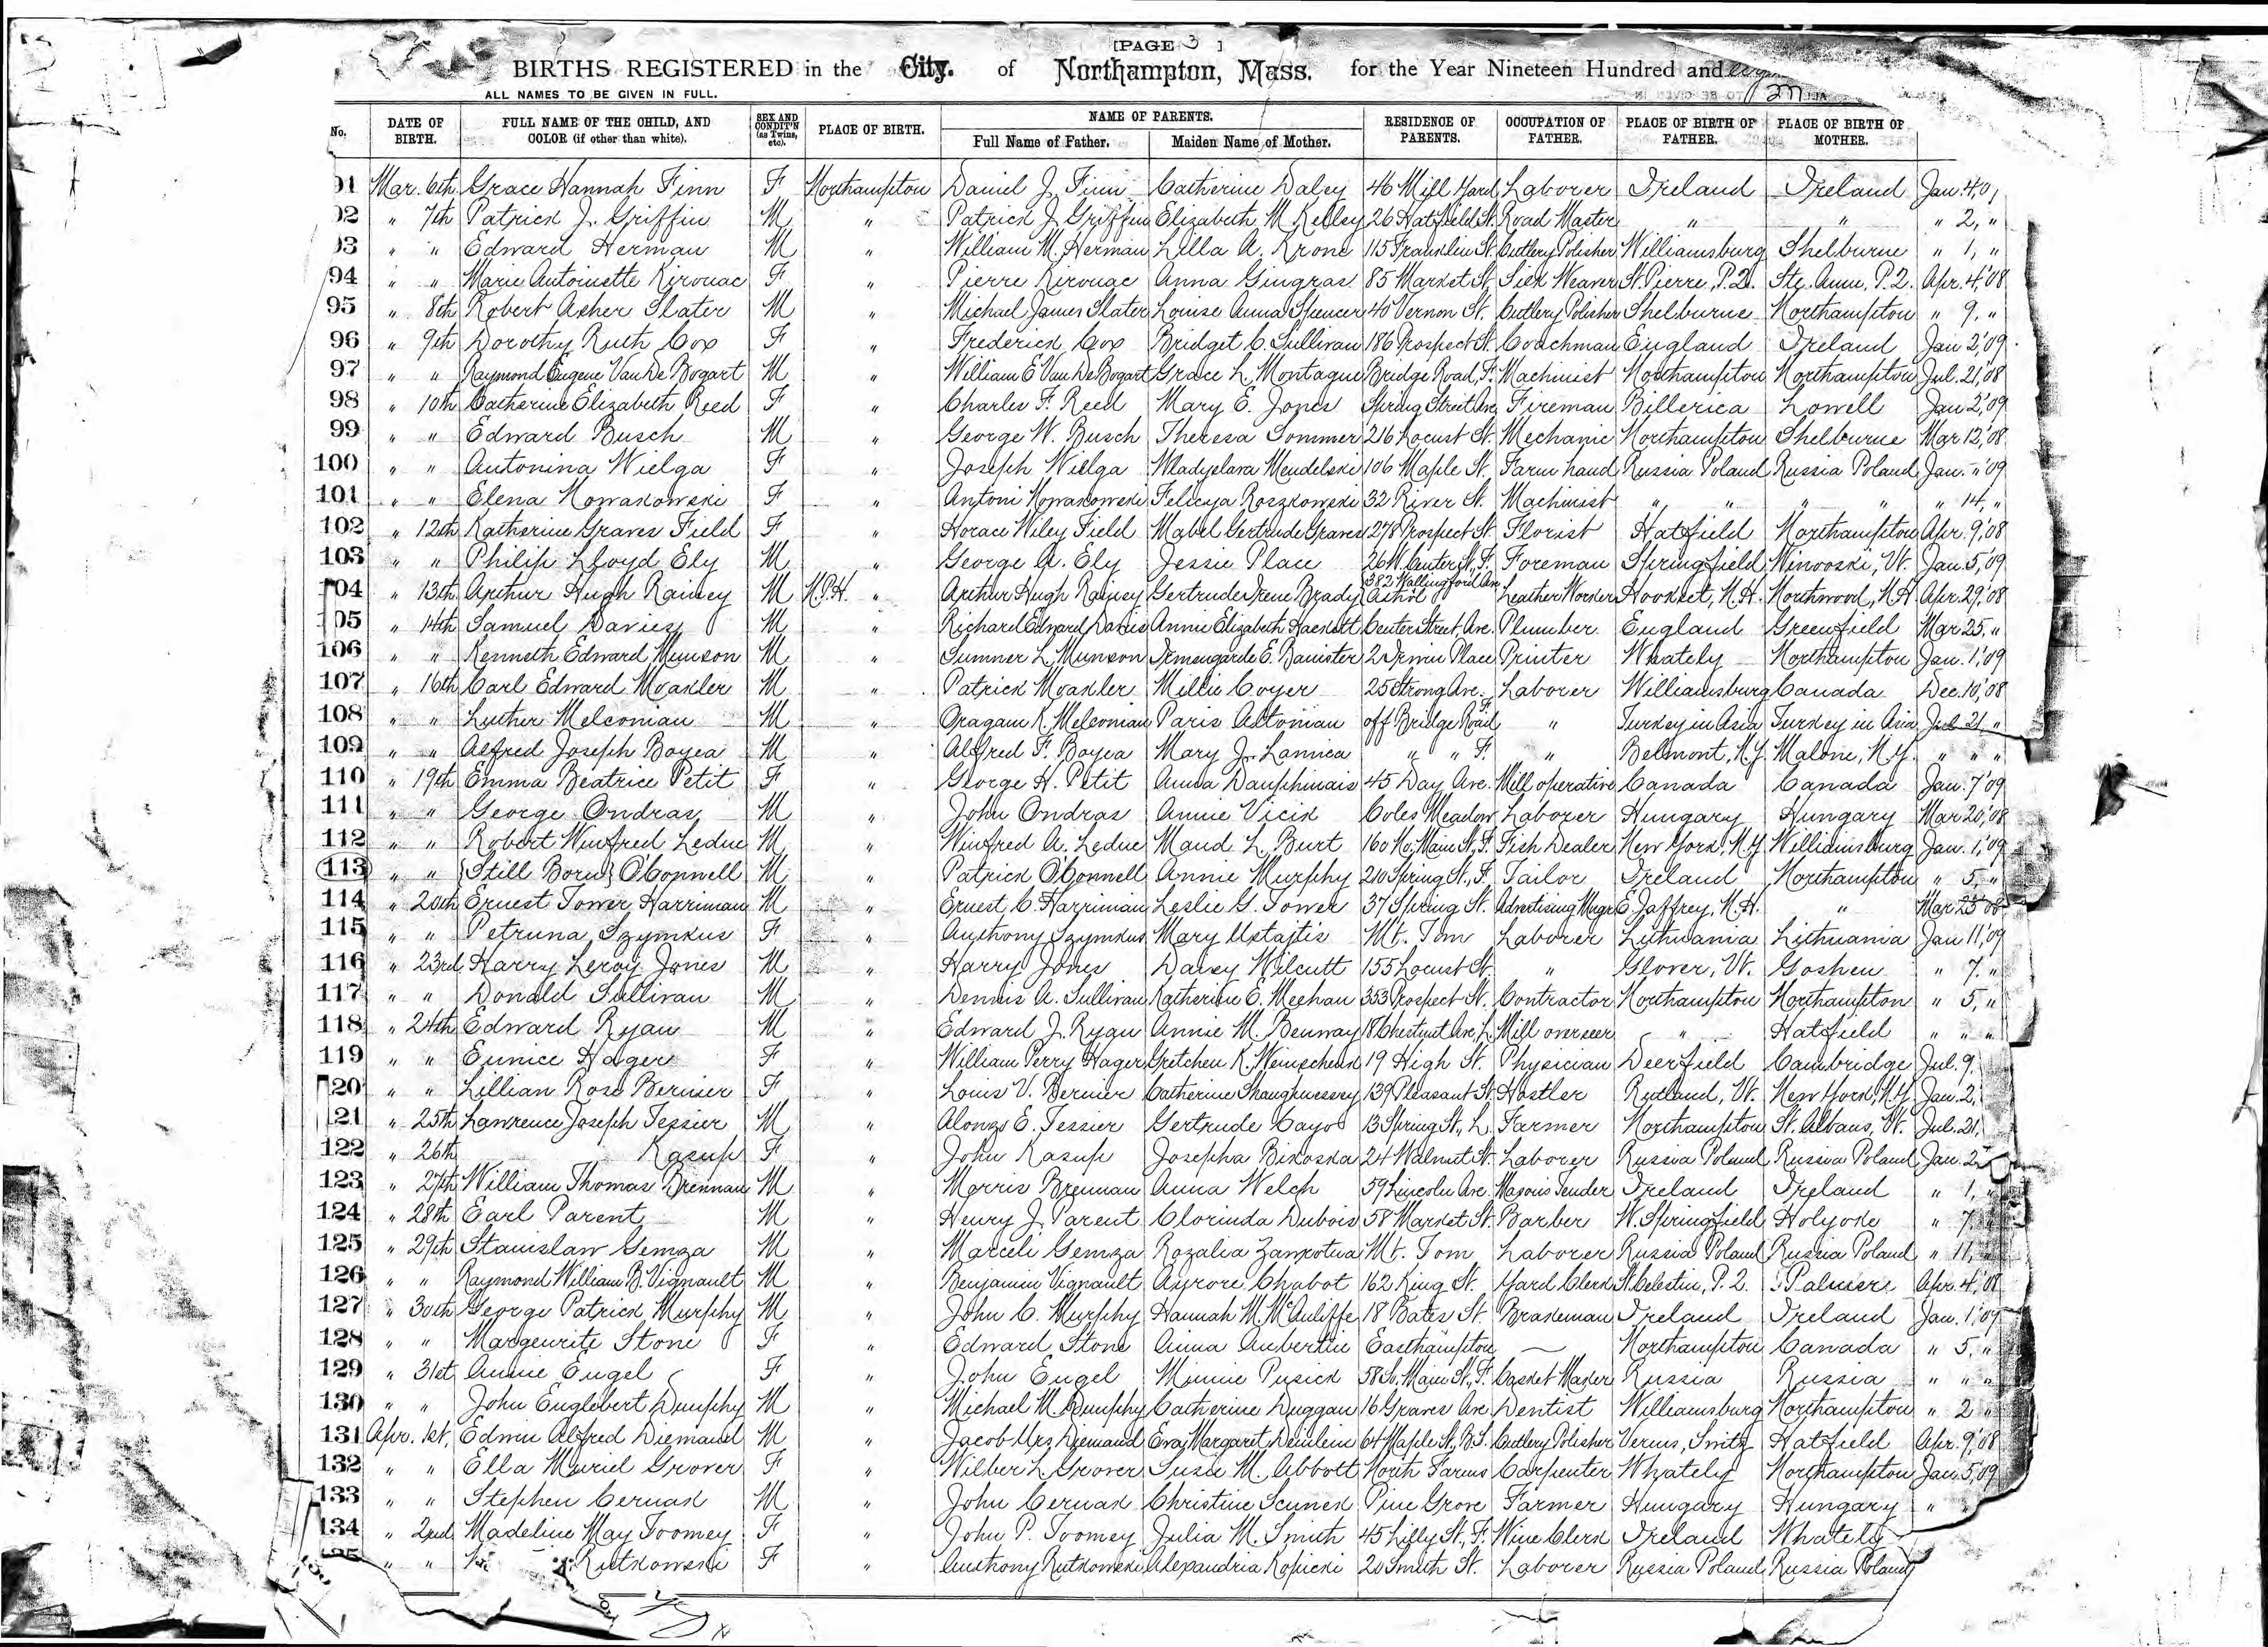 [PAGE 3 ]
BIRTHS REGISTERED in the City. of Northampton, Mass. for the Year Nineteen Hundred and
ALL NAMES TO BE GIVEN IN FULL.
No. DATE OF BIRTH. FULL NAME OF THE CHILD, AND COLOR (if other than white). SEX AND CONDIT'N (as Twins, etc). PLACE OF BIRTH. NAME OF PARENTS. Full Name of Father. Maiden Name of Mother. RESIDENCE OF PARENTS. OCCUPATION OF FATHER. PLACE OF BIRTH OF FATHER. PLACE OF BIRTH OF MOTHER.
91 Mar. 6th Grace Hannah Finn F Northampton Daniel J. Finn Catherine Daley 46 Mill Yard Laborer Ireland Ireland Jan. 4,
92 " 7th Patrick J. Griffin M " Patrick J. Griffin Elizabeth M. Kelley 26 Hatfield St. Road Master " " " 2, "
93 " " Edward Herman M " William M. Herman Lilla A. Krone 115 Franklin St. Cutlery Polisher Williamsburg Shelburne " 1, "
94 " " Marie Antoinette Kirouac F " Pierre Kirouac Anna Gingras 85 Market St. Silk Weaver St. Pierre, P.Q. Ste. Ann, P.Q. Apr. 4,'08
95 " 8th Robert Asher Slater M " Michael James Slater Louise Anna Spencer 40 Vernon St. Cutlery Polisher Shelburne Northampton " 9, "
96 " 9th Dorothy Ruth Cox F " Frederick Cox Bridget C. Sullivan 186 Prospect St. Coachman England Ireland Jan 2,'09
97 " " Raymond Eugene Van De Bogart M " William E Van De Bogart Grace L. Montague Bridge Road, F. Machinist Northampton Northampton Jul. 21,'08
98 " 10th Catherine Elizabeth Reed F " Charles F. Reed Mary E. Jones Spring Street Ave Fireman Billerica Lowell Jan 2,'09
99 " " Edward Busch M " George W. Busch Theresa Sommer 216 Locust St. Mechanic Northampton Shelburne Mar 12,'08
100 " " Antonina Wielga F " Joseph Wielga Wladyslava Mendelski 106 Maple St. Farm hand Russia Poland Russia Poland Jan. " '09
101 " " Elena Nowakowski F " Antoni Nowakowski Felicya Roszkowski 32 River St. Machinist " " " " " 14, "
102 " 12th Katherine Graves Field F " Horace Wiley Field Mabel Gertrude Graves 278 Prospect St. Florist Hatfield Northampton Apr. 9,'08
103 " " Philip Lloyd Ely M " George A. Ely Jessie Place 26 W. Center St., F. Foreman Springfield Winooski, Vt. Jan. 5,'09
104 " 13th Arthur Hugh Rainey M N.P.H. " Arthur Hugh Rainey Gertrude Irene Brady 382 Wallingford Ave Athol Leather Worker Hookset, N.H. Northwood, N.H. Apr. 29,'08
105 " 14th Samuel Davies M " Richard Edward Davies Annie Elizabeth Hackett Center Street Ave. Plumber England Greenfield Mar 25, "
106 " " Kenneth Edward Munson M " Sumner L. Munson Irmengarde E. Banister 2 Irwin Place Printer Whately Northampton Jan. 1,'09
107 " 16th Carl Edward Moakler M " Patrick Moakler Millie Coyer 25 Strong Ave. Laborer Williamsburg Canada Dec. 10,'08
108 " " Luther Melconian M " Oragam K. Melconian Paris Altonian off Bridge Road F. " Turkey in Asia Turkey in Asia Jul. 21 "
109 " " Alfred Joseph Boyea M " Alfred F. Boyea Mary J. Lamica " " F. " Belmont, N.Y. Malone, N.Y. " " "
110 " 19th Emma Beatrice Petit F " George H. Petit Anna Dauphinais 45 Day Ave. Mill operative Canada Canada Jan. 7 '09
111 " " George Ondras M " John Ondras Annie Vicik Coles Meadow Laborer Hungary Hungary Mar 20,'08
112 " " Robert Winfred Leduc M " Winfred A. Leduc Maud L. Burt 160 No. Main St., F. Fish Dealer New York, N.Y. Williamsburg Jan. 1,'09
113 " " {Still Born} O'Connell M " Patrick O'Connell Annie Murphy 210 Spring St., F. Tailor Ireland Northampton " 5, "
114 " 20th Ernest Tower Harriman M " Ernest C. Harriman Leslie G. Tower 37 Spring St. Advertising Mngr E. Jaffrey, N.H. " Mar 25 '08
115 " " Petruna Szymkus F " Anthony Szymkus Mary Ustajtis Mt. Tom Laborer Lithuania Lithuania Jan 11,'09
116 " 23rd Harry Leroy Jones M " Harry Jones Daisy Wilcutt 155 Locust St. " Glover, Vt. Goshen " 7. "
117 " " Donald Sullivan M " Dennis A. Sullivan Katherine E. Meehan 353 Prospect St. Contractor Northampton Northampton " 5, "
118 " 24th Edward Ryan M " Edward J. Ryan Annie M. Benway 18 Chestnut Ave, L. Mill overseer " Hatfield " " "
119 " " Eunice Hager F " William Perry Hager Gretchen K. Weinschenk 19 High St. Physician Deerfield Cambridge Jul. 9
120 " " Lillian Rose Bernier F " Louis V. Bernier Catherine Shaughnessey 139 Pleasant St. Hostler Rutland, Vt. New York, N.Y. Jan. 2,
121 " 25th Lawrence Joseph Tessier M " Alonzo E. Tessier Gertrude Cayo 13 Spring St., L. Farmer Northampton St. Albans, Vt. Jul. 21,
122 " 26th Kasup F " John Kasup Josepha Bikoska 24 Walnut St. Laborer Russia Poland Russia Poland Jan. 2
123 " 27th William Thomas Brennan M " Morris Brennan Anna Welch 59 Lincoln Ave. Masons Tender Ireland Ireland " 1, "
124 " 28th Earl Parent M " Henry J. Parent Clorinda Dubois 58 Market St. Barber W. Springfield Holyoke " 7, "
125 " 29th Stanislaw Gemza M " Marceli Gemza Rozalia Zamkotwa Mt. Tom Laborer Russia Poland Russia Poland " 11, "
126 " " Raymond William B. Vignault M " Benjamin Vignault Aurore Chabot 162 King St. Yard Clerk St. Celestin, P.Q. Palmer Apr. 4,'08
127 " 30th George Patrick Murphy M " John C. Murphy Hannah M. McAuliffe 18 Bates St. Brakeman Ireland Ireland Jan. 1,'09
128 " " Margeurite Stone F " Edward Stone Anna Aubertin Easthampton — Northampton Canada " 5, "
129 " 31st Annie Engel F " John Engel Minnie Pusick 58 So. Main St., F. Casket Maker Russia Russia " " "
130 " " John Englebert Dunphy M " Michael M. Dunphy Catherine Duggan 16 Graves Ave. Dentist Williamsburg Northampton " 2 "
131 Apr. 1st, Edwin Alfred Diemand M " Jacob Urs Diemand Eva Margaret Deinlein 64 Maple St., B.S. Cutlery Polisher Verins, Smitz Hatfield Apr. 9,'08
132 " " Ella Muriel Grover F " Wilber L. Grover Susie M. Abbott North Farms Carpenter Whately Northampton Jan. 5,'09
133 " " Stephen Cernak M " John Cernak Christine Scunek Pine Grove Farmer Hungary Hungary "
134 " 2nd Madeline May Toomey F " John P. Toomey Julia M. Smith 45 Lilly St., F. Wine Clerk Ireland Whately
" " Rutkowski F " Anthony Rutkowski Alexandria Kopicki 20 Smith St. Laborer Russia Poland Russia Poland